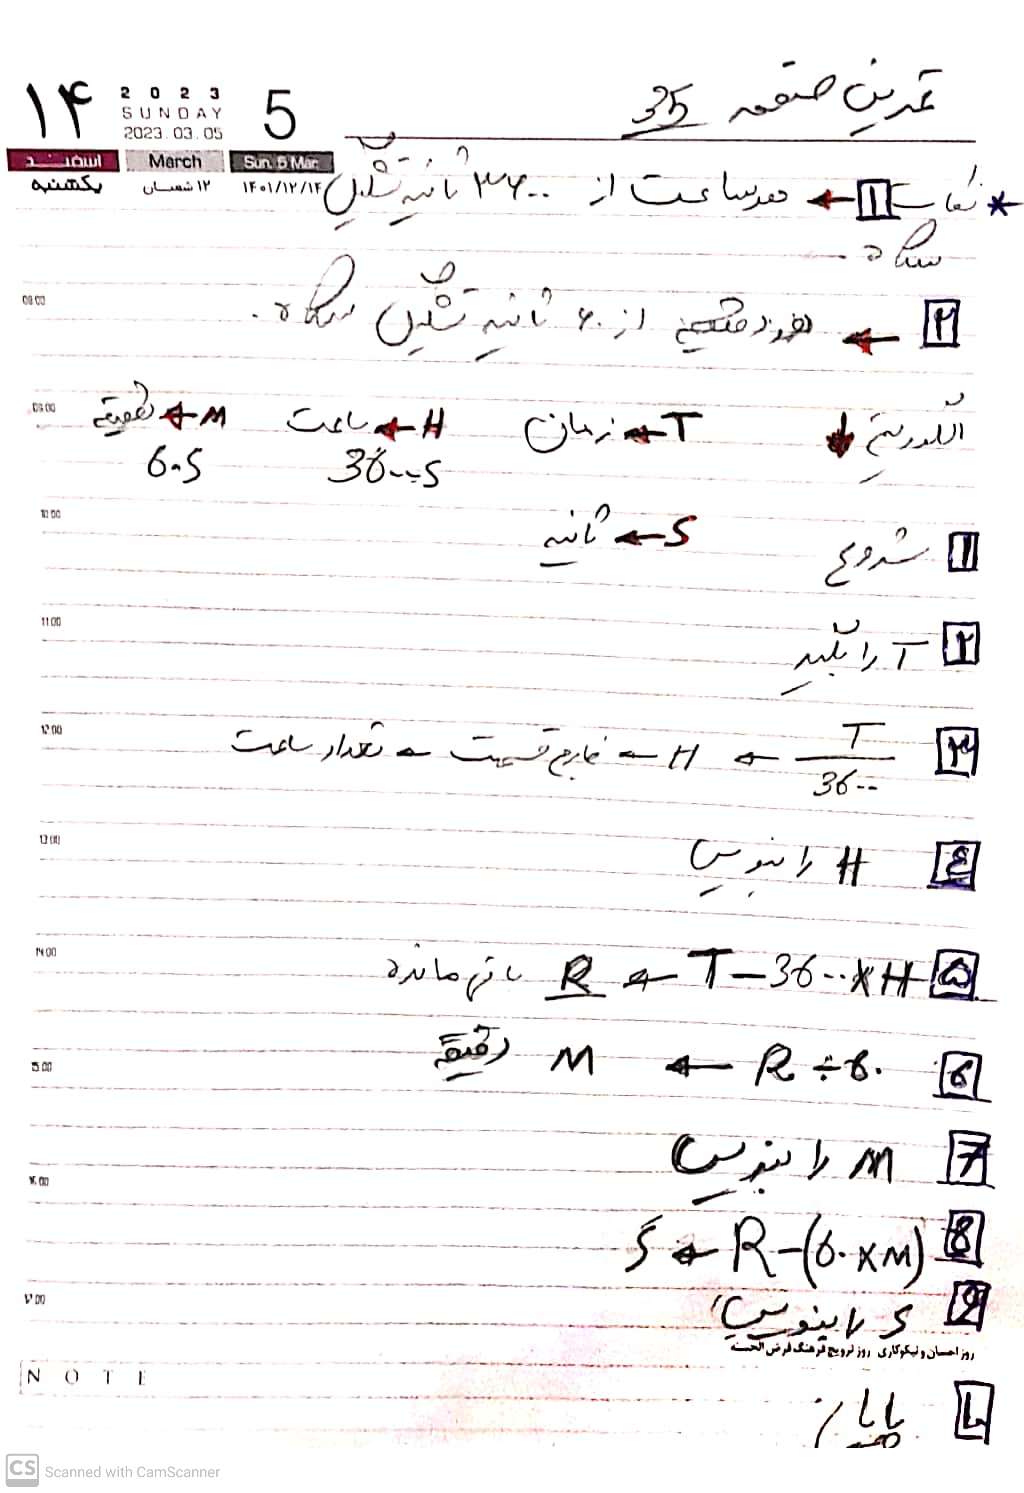 تمرین صفحه 35
۱۴ 2023 5
SUNDAY
2023.03.05
اسفنــد March Sun. 5 Mar.
یکشنبه ۱۲ شعبــان ۱۴۰۱/۱۲/۱۴
* نکات ۱ ← هر ساعت از ۳۶۰۰ ثانیه تشکیل
شده
۲ ← هر دقیقه از ۶۰ ثانیه تشکیل شده.
08:00
09:00
الگوریتم ↓ T ← زمان H ← ساعت M ← دقیقه
3600S 60S
10:00
۱ شروع S ← ثانیه
11:00
۲ T را بگیر
12:00
۳ T/3600 ← H ← خارج قسمت ← تعداد ساعت
13:00
٤ H را بنویس
14:00
۵ R ← T-3600×H باقی مانده
15:00
6 R÷60 → M دقیقه
7 M را بنویس
16:00
8 S ← R-(60×M)
17:00
9 S را بنویس
روز احسان و نیکوکاری روز ترویج فرهنگ قرض الحسنه
NOTE
۱۰ پایان
CS Scanned with CamScanner